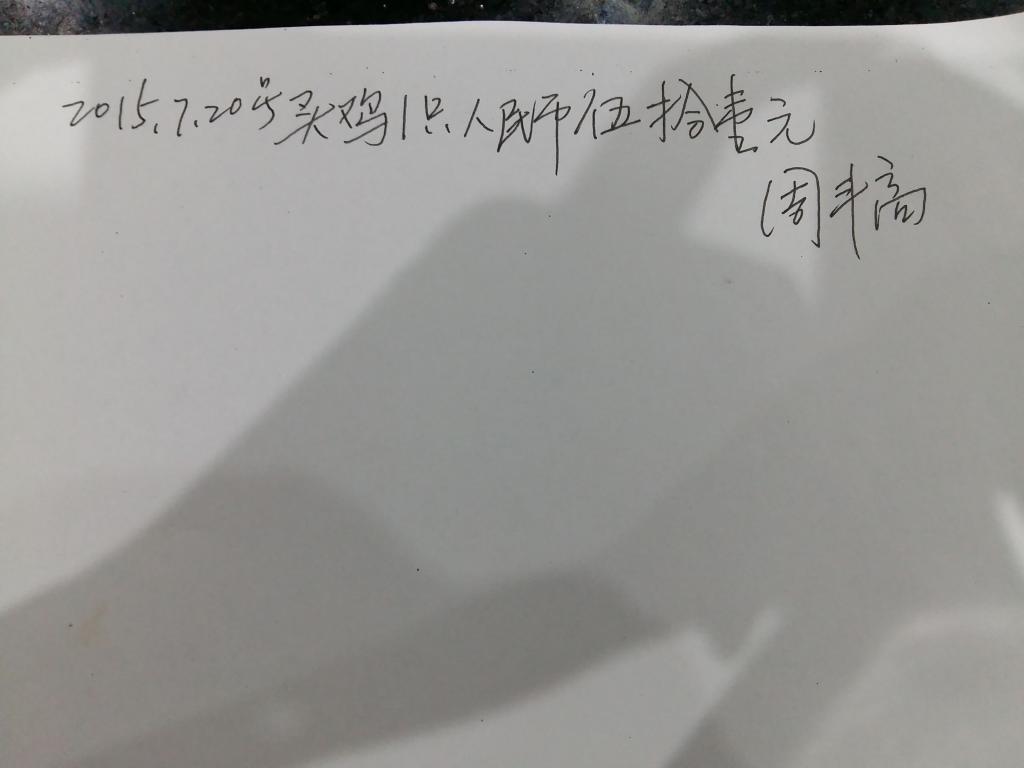 2015.7.20号买鸡1只人民币伍拾壹元
周丰高